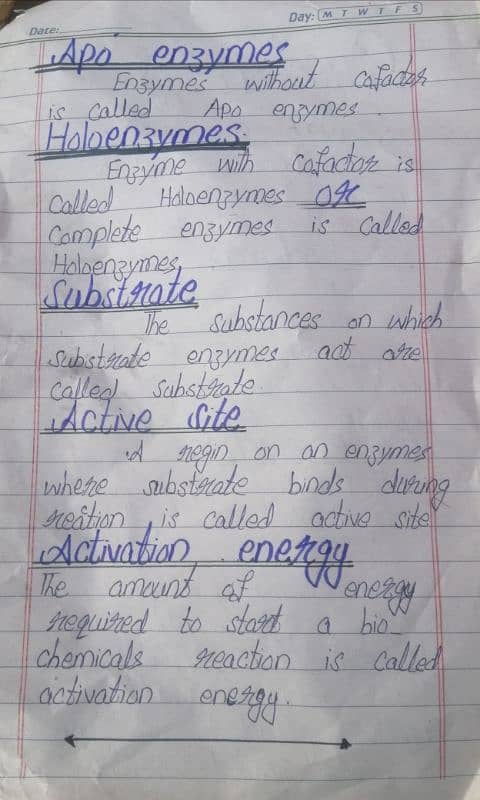 Day: M T W T F S
Date:
Apo enzymes
Enzymes without cofactor
is called Apo enzymes.
Holoenzymes.
Enzyme with cofactor is
called Holoenzymes OR
Complete enzymes is called
Holoenzymes.
Substrate
The substances on which
substrate enzymes act are
called substrate.
Active site
A regin on an enzymes
where substrate binds during
reation is called active site
Activation energy
The amount of energy
required to start a bio-
chemicals reaction is called
activation energy.